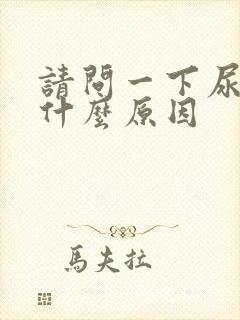 請問一下尿
什麼原因
馬夫拉